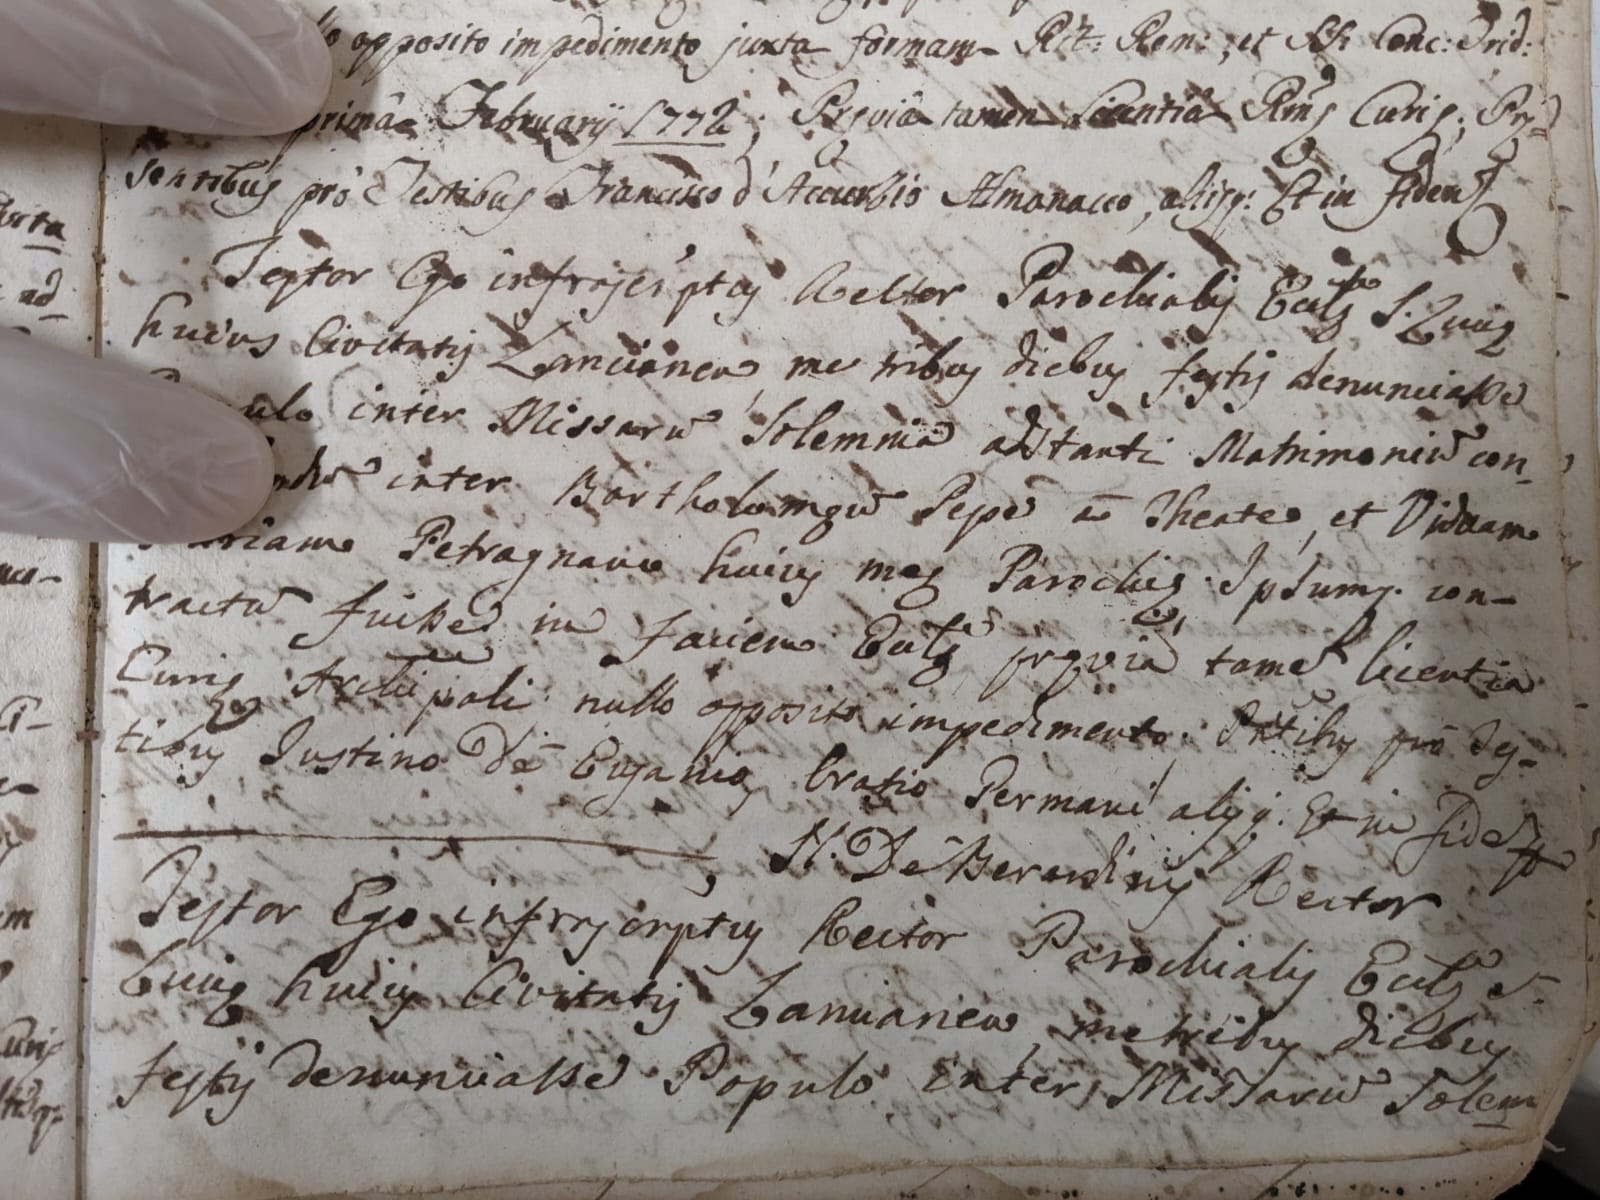 opposito impedimento juxta formam Rit: Rom:, et SS. Conc: Trid:
primâ Februarij 1772; Pręviâ tamen licentiâ Rmę Curię; Prę-
sentibus prò Testibus Francisco d'Accursio Almonacco, alijsq: Et in fidem
Testor Ego infrascriptus Rector Parochialis Eccłę S. Lucię
hujus Civitatis Lanciani, me tribus diebus festis denunciasse
inter Missarũ Solemnia adstanti Matrimoniũ con-
inter Bartholomęũ Pepe a Theate, et Viduam
Mariam Petragnani hujus meę Parochię. Ipsumq. con-
tractũ fuisse in faciem Eccłę, pręviâ tamẽ licentia
Curię Archiepali: nullo opposito impedimento; Pñtibus prò Tes-
tibus Justino De Eugenio, Oratio Permani alijsq. Et in fidẽ
N. De Berardinis Rector
Testor Ego infrascriptus Rector Parochialis Eccłę S.
Lucię hujus Civitatis Lanciani, me tribus diebus
festis denunciasse Populo inter Missarũ Solem